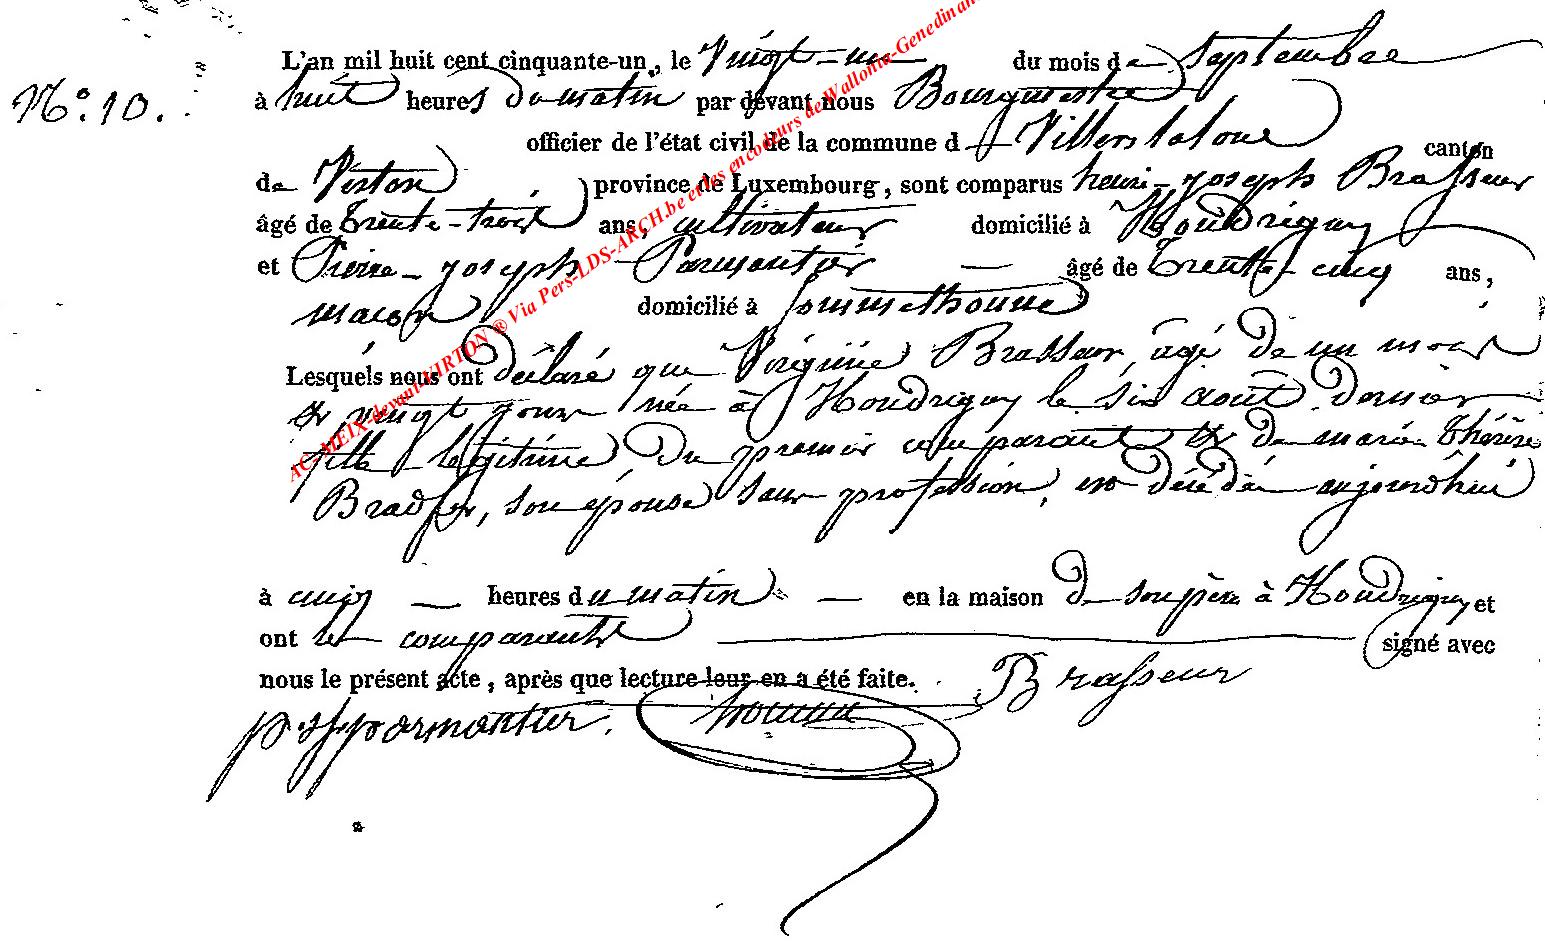 N.o 10.
L'an mil huit cent cinquante-un, le Vingt-un du mois de Septembre
à huit heures du matin par devant nous Bourgmestre
officier de l'état civil de la commune de Villers la loue canton
de Virton province de Luxembourg, sont comparus henri-joseph Brasseur
âgé de trente-trois ans, cultivateur domicilié à Houdrigny
et Pierre-joseph Parmentier — âgé de trente-cinq ans,
maçon domicilié à Sommethonne
Lesquels nous ont déclaré que Virginie Brasseur, âgé de un mois
& vingt jours née à Houdrigny le six août dernier
fille légitime du premier comparant & de marie Thérèse
son épouse sans profession, est décédée aujourd'hui
à cinq — heures du matin — en la maison de son père à Houdrigny et
ont les comparants signé avec
nous le présent acte, après que lecture leur en a été faite.
Brasseur
p. j. parmentier.
AC-MEIX-devant-VIRTON ® Via Pers-LDS-ARCH.be et les encodeurs de Wallonia-Genedinan